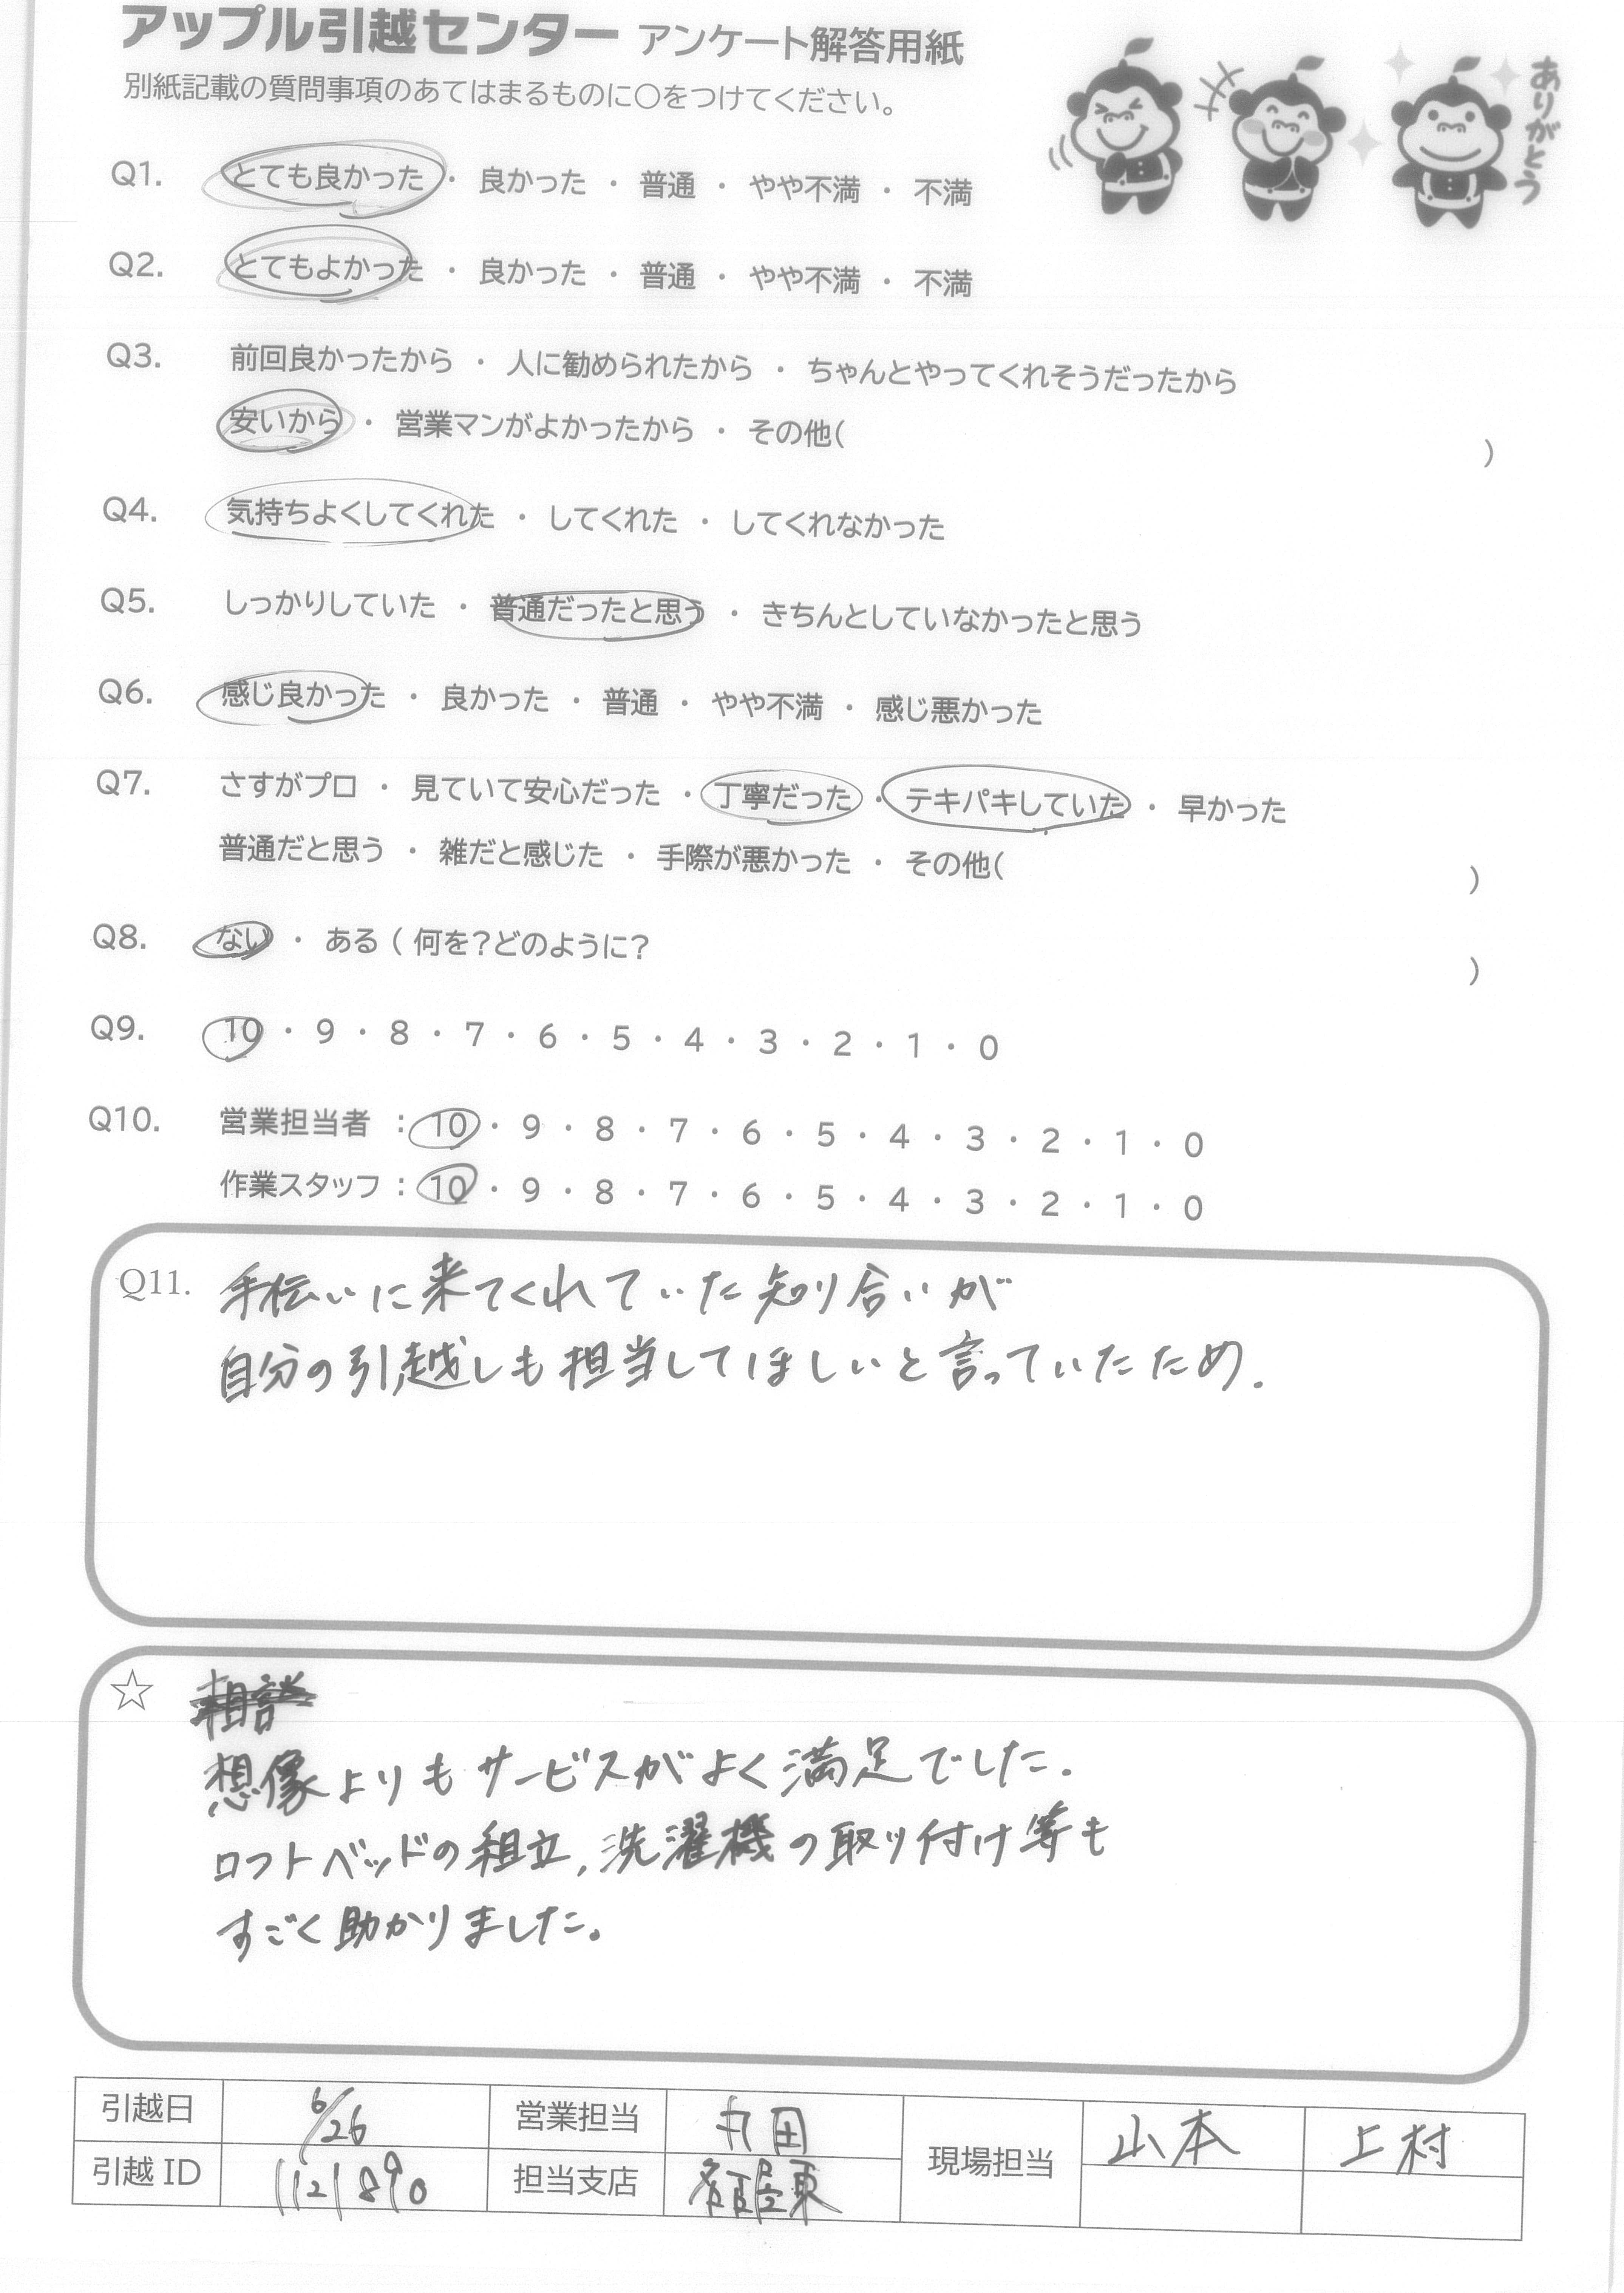 アップル引越センター アンケート解答用紙
別紙記載の質問事項のあてはまるものに○をつけてください。
ありがとう
Q1. とても良かった ・ 良かった ・ 普通 ・ やや不満 ・ 不満
Q2. とてもよかった ・ 良かった ・ 普通 ・ やや不満 ・ 不満
Q3. 前回良かったから ・ 人に勧められたから ・ ちゃんとやってくれそうだったから
安いから ・ 営業マンがよかったから ・ その他( )
Q4. 気持ちよくしてくれた ・ してくれた ・ してくれなかった
Q5. しっかりしていた ・ 普通だったと思う ・ きちんとしていなかったと思う
Q6. 感じ良かった ・ 良かった ・ 普通 ・ やや不満 ・ 感じ悪かった
Q7. さすがプロ ・ 見ていて安心だった ・ 丁寧だった ・ テキパキしていた ・ 早かった
普通だと思う ・ 雑だと感じた ・ 手際が悪かった ・ その他( )
Q8. ない ・ ある ( 何を?どのように? )
Q9. 10 ・ 9 ・ 8 ・ 7 ・ 6 ・ 5 ・ 4 ・ 3 ・ 2 ・ 1 ・ 0
Q10. 営業担当者 : 10 ・ 9 ・ 8 ・ 7 ・ 6 ・ 5 ・ 4 ・ 3 ・ 2 ・ 1 ・ 0
作業スタッフ : 10 ・ 9 ・ 8 ・ 7 ・ 6 ・ 5 ・ 4 ・ 3 ・ 2 ・ 1 ・ 0
Q11. 手伝いに来てくれていた知り合いが
自分の引越しも担当してほしいと言っていたため.
☆ 相談
想像よりもサービスがよく満足でした.
ロフトベッドの組立,洗濯機の取り付け等も
すごく助かりました。
引越日 6/26 営業担当 現場担当 山本 上村
引越 ID 1121890 担当支店